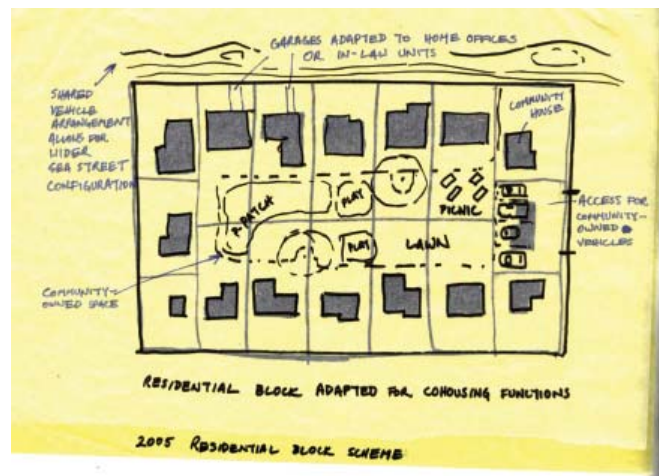 GARAGES ADAPTED TO HOME OFFICES
OR IN-LAW UNITS
SHARED
VEHICLE
ARRANGEMENT
ALLOWS FOR
WIDER
SEA STREET
CONFIGURATION
COMMUNITY
HOUSE
P-PATCH
PLAY
PICNIC
PLAY
LAWN
ACCESS FOR
COMMUNITY-
OWNED
VEHICLES
COMMUNITY-
OWNED SPACE
RESIDENTIAL BLOCK ADAPTED FOR COHOUSING FUNCTIONS
2005 RESIDENTIAL BLOCK SCHEME